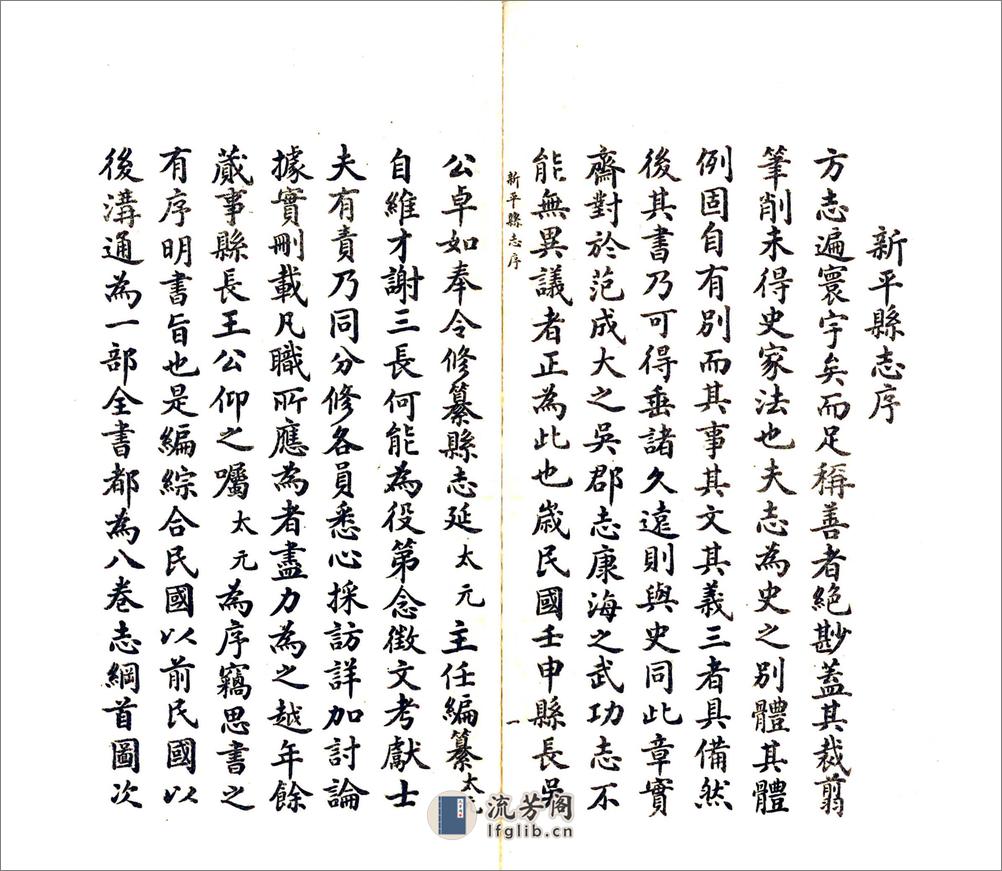 新平縣志序
方志遍寰宇矣而足稱善者絕尠蓋其裁翦
筆削未得史家法也夫志為史之別體其體
例固自有別而其事其文其義三者具備然
後其書乃可得垂諸久遠則與史同此章實
齋對於范成大之吳郡志康海之武功志不
能無異議者正為此也歲民國壬申縣長吳
新平縣志序
一
公卓如奉令修纂縣志延太元主任編纂太元
自維才謝三長何能為役第念徵文考獻士
夫有責乃同分修各員悉心採訪詳加討論
據實刪載凡職所應為者盡力為之越年餘
蕆事縣長王公仰之囑太元為序竊思書之
有序明書旨也是編綜合民國以前民國以
後溝通為一部全書都為八卷志綱首圖次
流芳阁
lfglib.cn